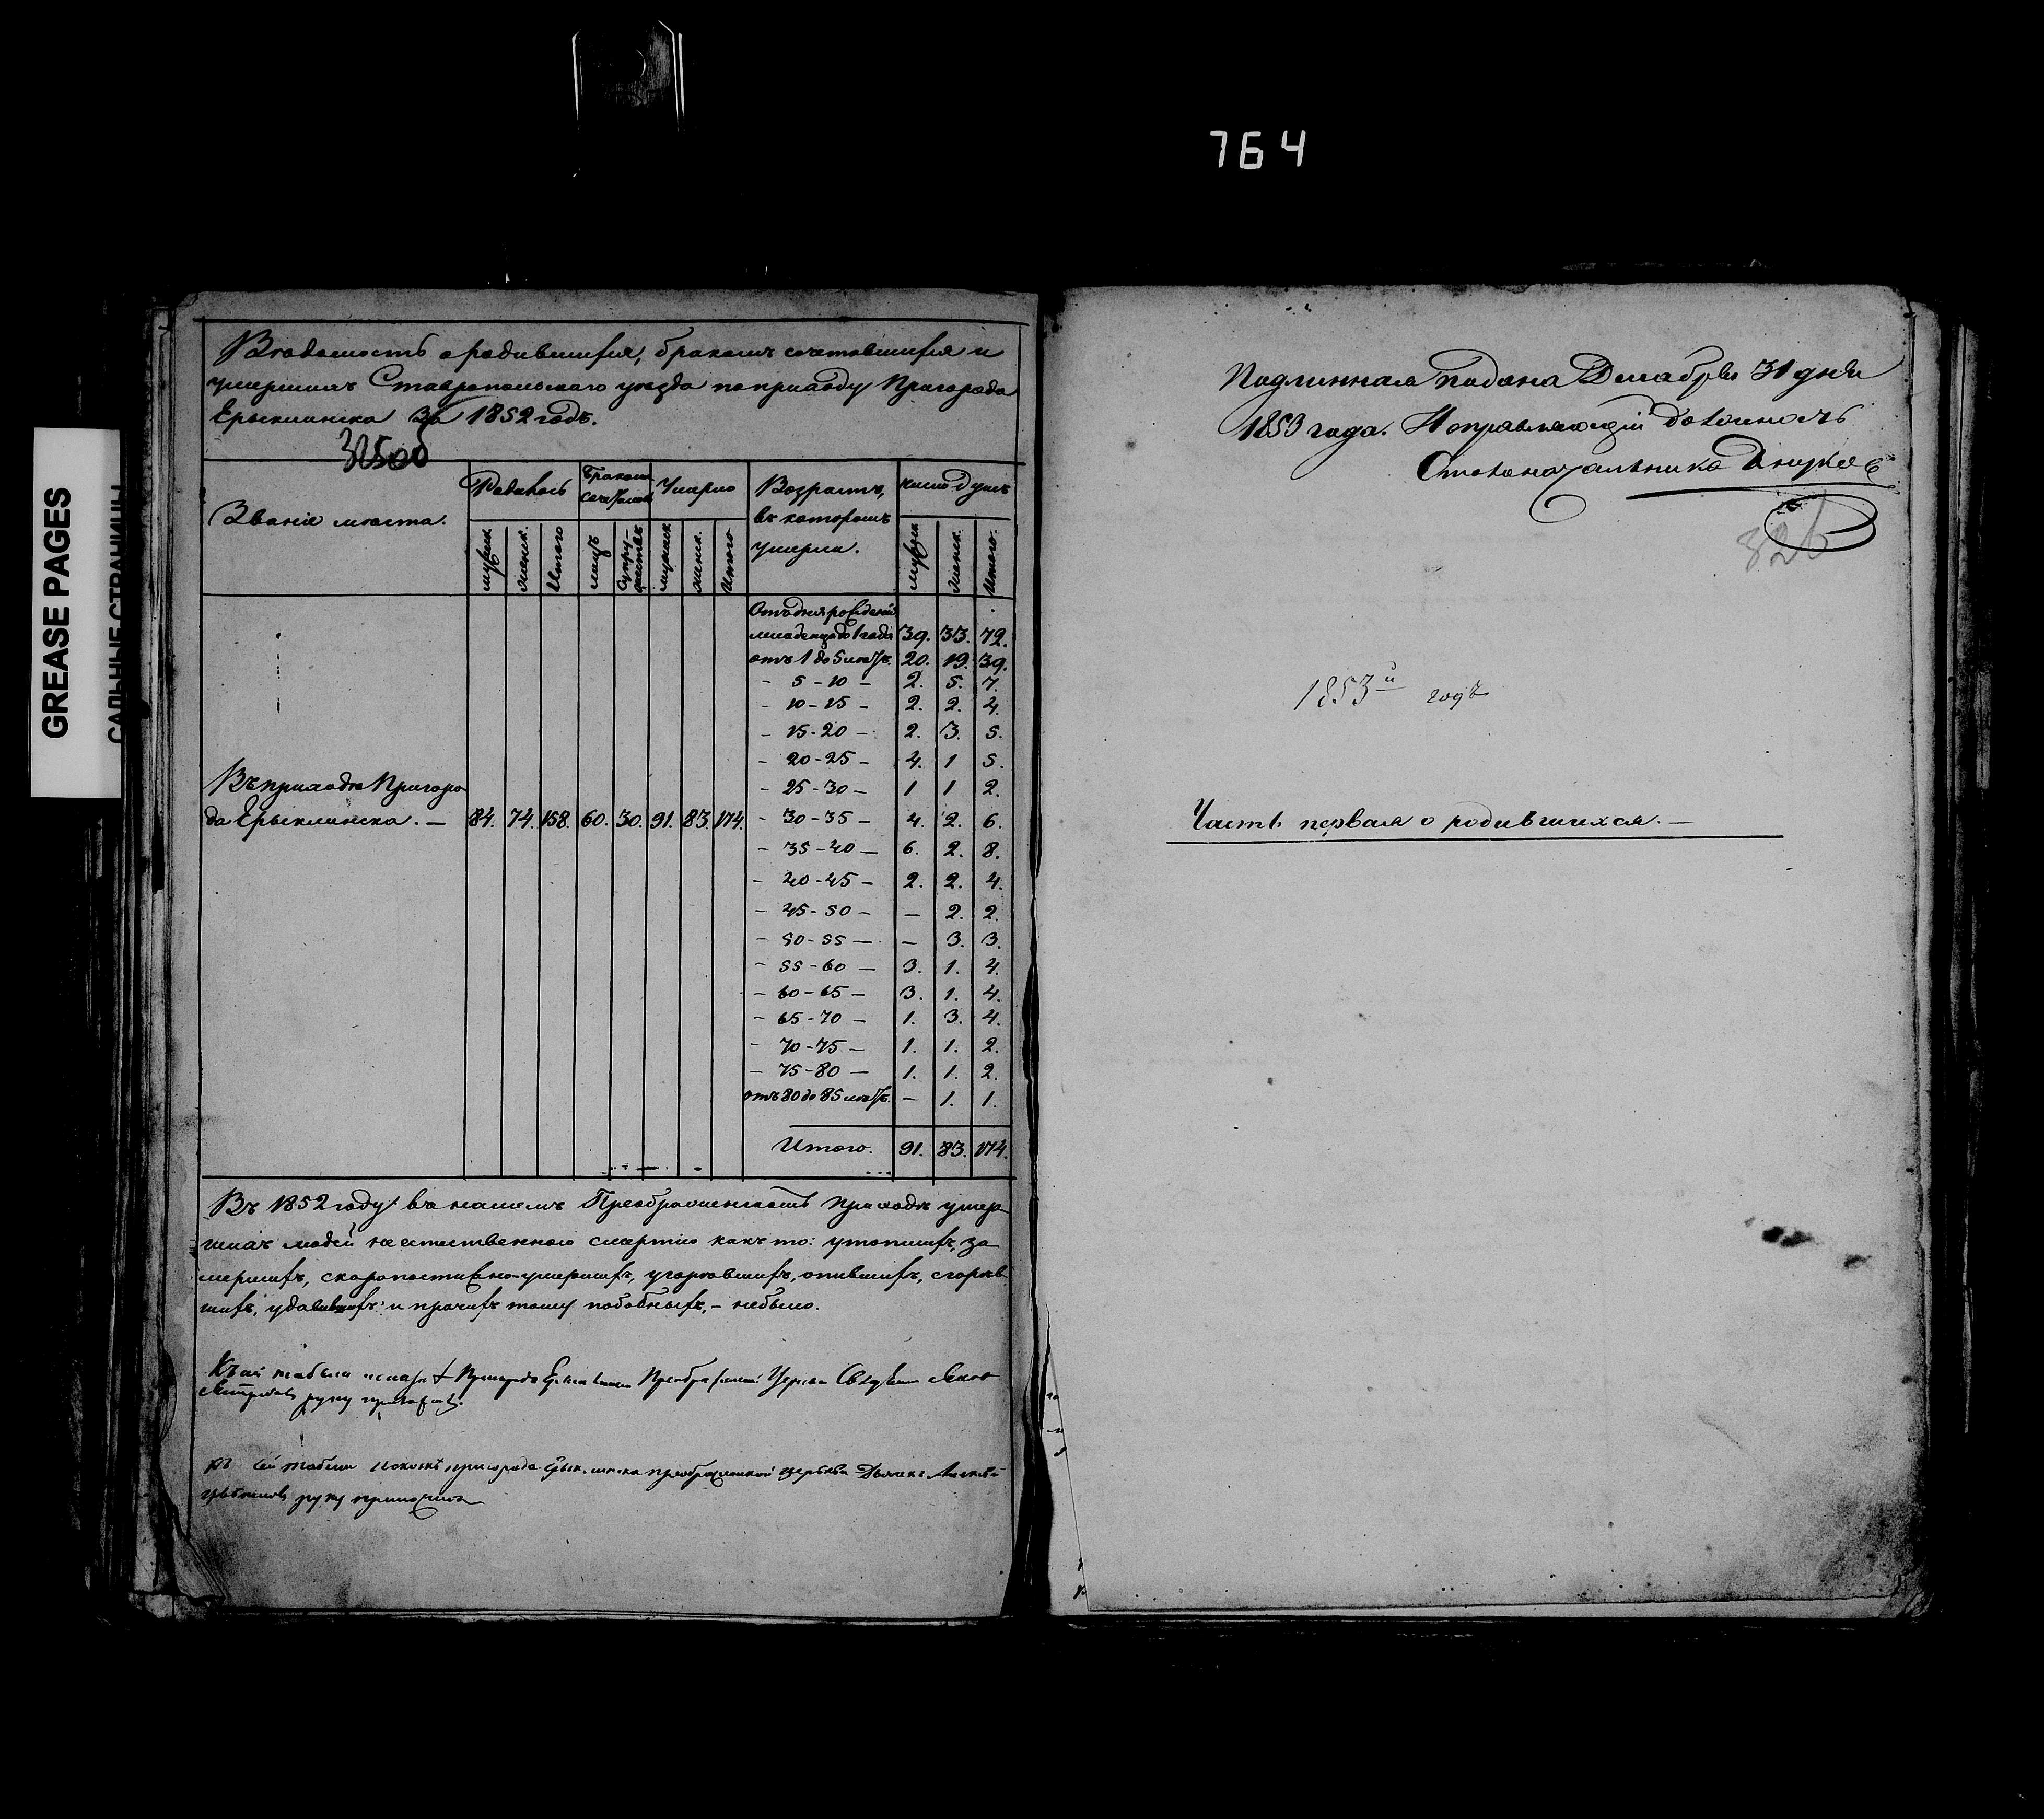 764
GREASE PAGES
САЛЬНЫЕ СТРАНИЦЫ
Вѣдомость о родившихся, бракомъ сочетавшихся и
умершихъ Ставропольскаго уѣзда по приходу Пригорода
Ерыклинска За 1852 годъ.
Званіе мѣста.
Родилось
Бракомъ сочеталось
Умерло
Возрастъ,
въ которомъ
умерли.
число Душъ
мужск.
женск.
Итого
лицъ
супружествъ
мужеск
женск.
Итого.
мужск
женск.
Итого.
Отъ дня рожденія
младенца до 1 года 39. 33. 72.
отъ 1 до 5 лѣтъ. 20. 19. 39.
- 5-10 - 2. 5. 7.
- 10-15 - 2. 2. 4.
- 15-20 - 2. 3. 5.
- 20-25 - 4. 1 5.
- 25-30 - 1 1 2.
Въ приходѣ Пригоро
да Ерыклинска. — 84. 74. 158. 60. 30. 91. 83. 174. - 30-35 - 4. 2. 6.
- 35-40 - 6. 2. 8.
- 40-45 - 2. 2. 4.
- 45-50 - — 2. 2.
- 50-55 - — 3. 3.
- 55-60 - 3. 1. 4.
- 60-65 - 3. 1. 4.
- 65-70 - 1. 3. 4.
- 70-75 - 1. 1. 2.
- 75-80 - 1. 1. 2.
отъ 80 до 85 лѣтъ. — 1. 1.
Итого. 91. 83. 174.
Въ 1852 году въ нашемъ Преображенскомъ Приходѣ умер
шихъ людей неестественною смертію какъ то: утопшихъ, за
мершихъ, скоропостижно-умершихъ, угорѣвшихъ, опившихъ, сгорѣв
шихъ, удавившихъ и прочихъ тому подобныхъ, - небыло.
Къ сей табели Пригорода Ерыклинска Церкви
руку приложилъ.
Къ сей табели пригорода Ерыклинска преображенской церкви
руку приложилъ
Подлинная подана Декабря 31 дня
1853 года. Исправляющій должность
Столоначальника
326
1853й годъ
Часть первая о родившихся. —